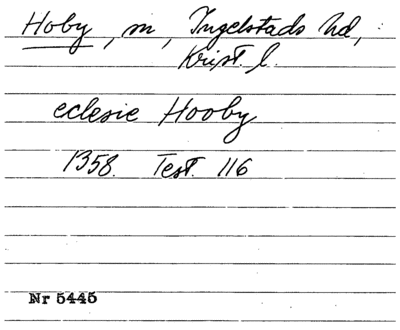 Hoby, m, Ingelstads hd,
Krist. l.
eclesie Hooby
1358. Test. 116
Nr 5445